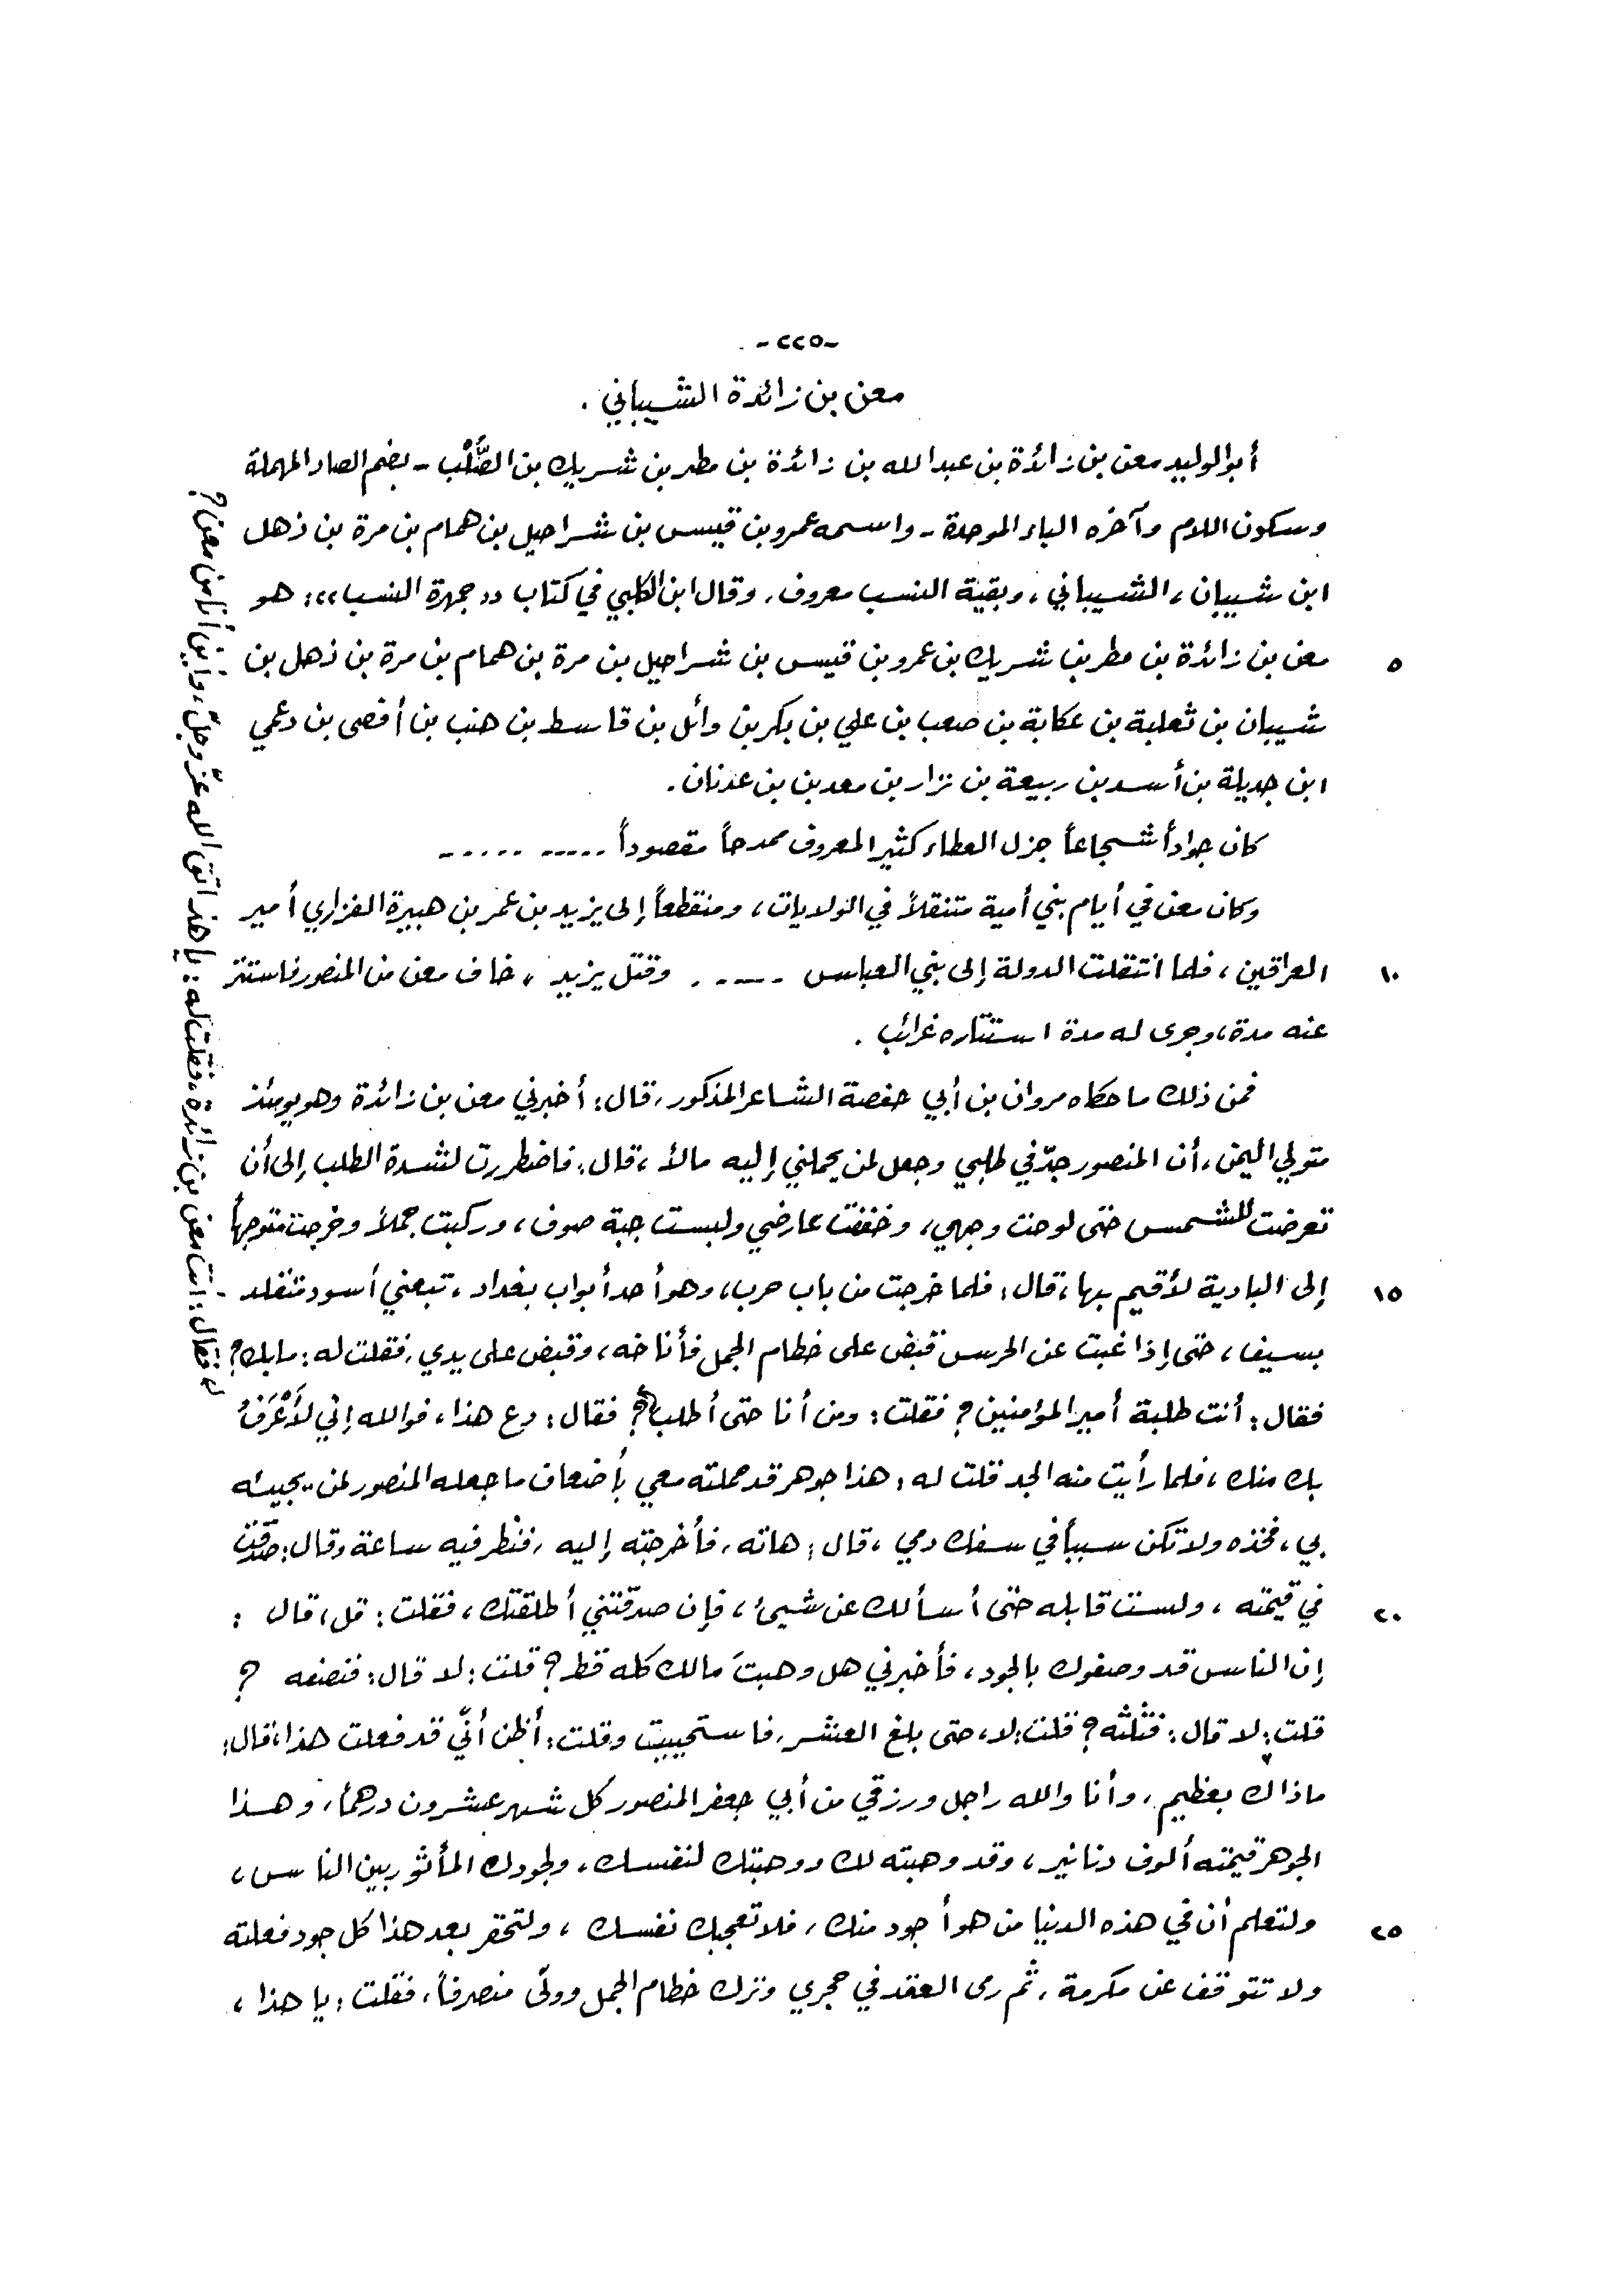 -٢٢٥-
معن بن زائدة الشيباني .
أبو الوليد معن بن زائدة بن عبد الله بن زائدة بن مطر بن شريك بن الصُّلْب - بضم الصاد المهملة
وسكون اللام وآخره الباء الموحدة - واسمه عمرو بن قيس بن شراحيل بن همام بن مرة بن ذهل
ابن شيبان، الشيباني، وبقية النسب معروف. وقال ابن الكلبي في كتاب ,, جمهرة النسب ,,: هو
٥ معن بن زائدة بن مطر بن شريك بن عمرو بن قيس بن شراحيل بن مرة بن همام بن مرة بن ذهل بن
شيبان بن ثعلبة بن عكابة بن صعب بن علي بن بكر بن وائل بن قاسط بن هنب بن أفصى بن دعمي
ابن جديلة بن أسد بن ربيعة بن نزار بن معد بن بن عدنان.
كان جواداً شجاعاً جزل العطاء كثير المعروف ممدحاً مقصوداً ..... .....-
وكان معن في أيام بني أمية متنقلاً في الولايات، ومنقطعاً إلى يزيد بن عمر بن هبيرة الفزاري أمير
١٠ العراقين، فلما انتقلت الدولة إلى بني العباس ..... وقتل يزيد، خاف معن من المنصور فاستتر
عنه مدة، وجرى له مدة استتاره غرائب .
فمن ذلك ما حكاه مروان بن أبي حفصة الشاعر المذكور، قال: أخبرني معن بن زائدة وهو يومئذ
متولي اليمن، أن المنصور جدّ في طلبي وجعل لمن يحملني إليه مالاً، قال: فاضطررت لشدة الطلب إلى أن
تعرضت للشمس حتى لوحت وجهي، وخففت عارضي ولبست جبة صوف، وركبت جملاً وخرجت متوجهاً
١٥ إلى البادية لأقيم بها، قال: فلما خرجت من باب حرب، وهو أحد أبواب بغداد، تبعني أسود متقلد
بسيف، حتى إذا غبت عن الحرس قبض على خطام الجمل فأناخه، وقبض على يدي، فقلت له: ما بك؟
فقال: أنت طلبة أمير المؤمنين؟ فقلت: ومن أنا حتى أطلب؟ فقال: دع هذا، فوالله إني لأَعْرَفُ
بك منك، فلما رأيت منه الجد قلت له: هذا جوهر قد حملته معي بأضعاف ما جعله المنصور لمن يجيئه
بي، فخذه ولا تكن سبباً في سفك دمي، قال: هاته، فأخرجته إليه، فنظر فيه ساعة وقال: صدقت
٢٠ في قيمته، ولست قابله حتى أسألك عن شيئ، فإن صدقتني أطلقتك، فقلت: قل، قال :
إن الناس قد وصفوك بالجود، فأخبرني هل وهبتَ مالك كله قط؟ قلت: لا قال: فنصفه ؟
قلت: لا قال: فثلثه؟ قلت: لا، حتى بلغ العشر، فاستحييت وقلت: أظن أنّي قد فعلت هذا، قال:
ماذاك بعظيم، وأنا والله راجل ورزقي من أبي جعفر المنصور كل شهر عشرون درهماً، وهذا
الجوهر قيمته ألوف دنانير، وقد وهبته لك ووهبتك لنفسك، ولجودك المأثور بين الناس،
٢٥ ولتعلم أن في هذه الدنيا من هو أجود منك، فلا تعجبك نفسك، ولتحقر بعد هذا كل جود فعلته
ولا تتوقف عن مكرمة، ثم رمى العقد في حجري وترك خطام الجمل وولّى منصرفاً، فقلت: يا هذا،
فقال: أنت معن بن زائدة، فقلت له: يا هذا اتق الله عزّ وجلّ، وأين أنا من معن؟